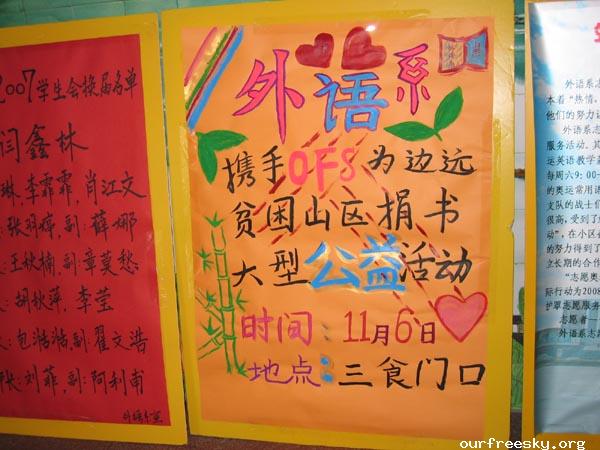 2007学生会换届名单
闫鑫林
琳,李霏霏,肖江文
:张玥婷,副:薛娜
:王秋楠,副:章莫愁
:胡秋萍,李莹
:包浩浩,副:翟文浩
长:刘菲,副:阿利甫
外语系宣
外语系
携手OFS为边远
贫困山区捐书
大型公益活动
时间:11月6日
地点:三食门口
外语系志
本着“热情,
他们的努力让
外语系志
服务活动。其
运英语教学
每周六9:00-
的奥运常用语
支队的战士们
很高,受到了
动”,在小区
的努力得到了
立长期的合作
“志愿奥
际行动为2008
志愿者一
外语系志
ourfreesky.org